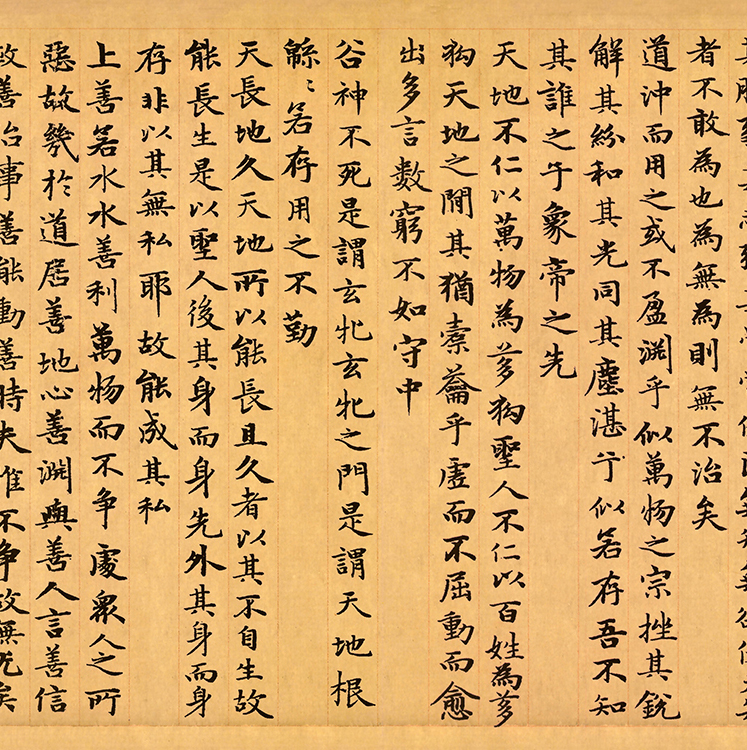 者不敢為也為無為則無不治矣
道沖而用之或不盈淵乎似萬物之宗挫其銳
解其紛和其光同其塵湛兮似若存吾不知
其誰之子象帝之先
天地不仁以萬物為芻狗聖人不仁以百姓為芻
狗天地之間其猶橐籥乎虛而不屈動而愈
出多言數窮不如守中
谷神不死是謂玄牝玄牝之門是謂天地根
緜〻若存用之不勤
天長地久天地所以能長且久者以其不自生故
能長生是以聖人後其身而身先外其身而身
存非以其無私耶故能成其私
上善若水水善利萬物而不争處衆人之所
惡故幾於道居善地心善淵與善人言善信
政善治事善能動善時夫惟不争故無尤矣